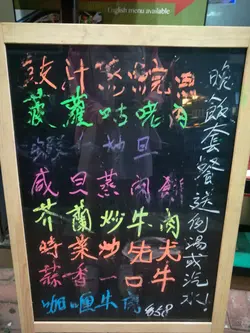 English menu available
豉汁蒸鯇魚
菠蘿咕咾肉
炒旦
咸旦蒸肉餅
芥蘭炒牛肉
時菜炒
蒜香一口牛
咖喱牛
$58
晚飯套餐送例湯或汽水!